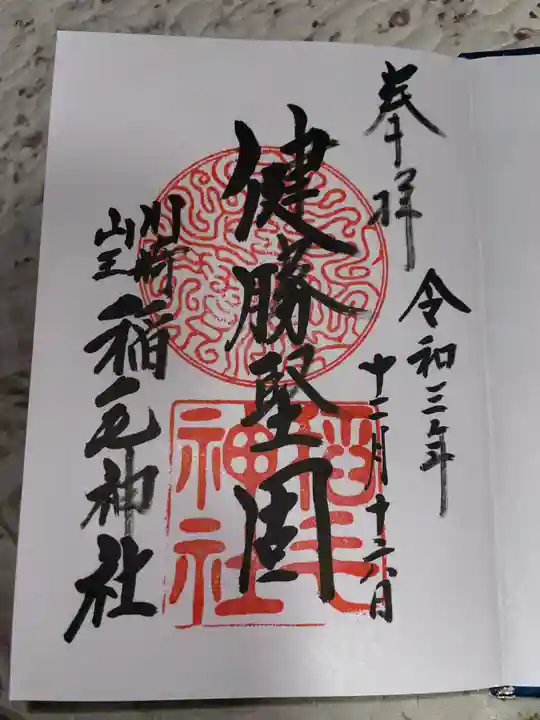 奉拝
令和三年
十二月
健勝堅固
川崎
山王
稲毛神社
稲毛
神社